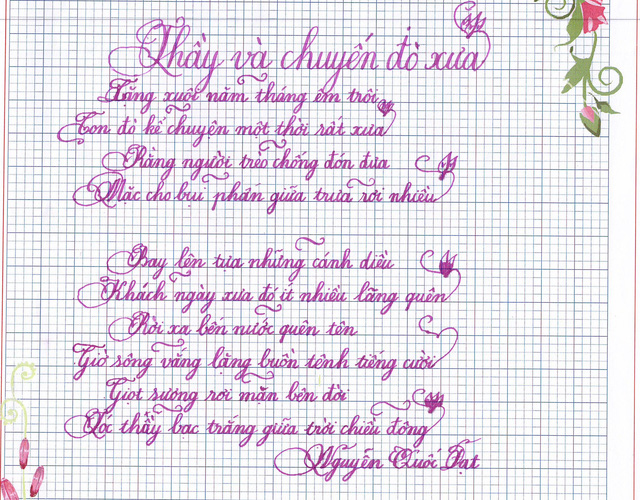 Thầy và chuyến đò xưa
Lặng xuôi năm tháng êm trôi
Con đò kể chuyện một thời rất xưa
Rằng người trèo chống đón đưa
Mặc cho bụi phấn giữa trưa rơi nhiều
Bay lên tựa những cánh diều
Khách ngày xưa đó ít nhiều lãng quên
Rời xa bến nước quên tên
Giờ sông vắng lặng buồn tênh tiếng cười
Giọt sương rơi mặn bên đời
Tóc thầy bạc trắng giữa trời chiều đông
Nguyễn Quốc Đạt